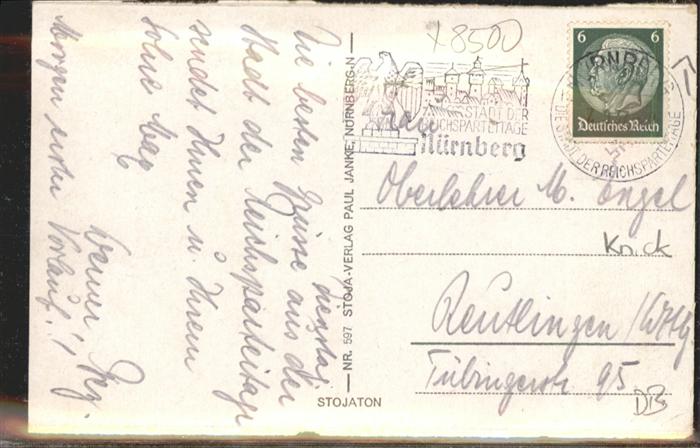 Dienstag
Die besten Grüsse aus der
Stadt der Reichsparteitage
sendet Ihnen u. Ihrem
Sohne
Werner
Morgen erster Vorlauf!!
NR. 597 STOJA-VERLAG PAUL JANKE, NÜRNBERG-N
STOJATON
x 8500
STADT DER
REICHSPARTEITAGE
Nürnberg
6 6
Deutsches Reich
NÜRNBERG
DIE STADT DER REICHSPARTEITAGE
Oberlehrer M. Engel
Knick
Reutlingen / Wttbg
Tübingerstr 95
DB